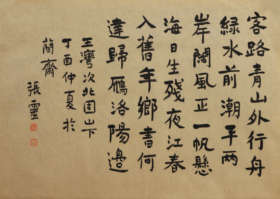 客路青山外行舟
綠水前潮平两
岸闊風正一帆懸
海日生殘夜江春
入舊年鄉書何
達歸雁洛陽邊
王灣次北固山下
丁酉仲夏於
簡齋
張靈